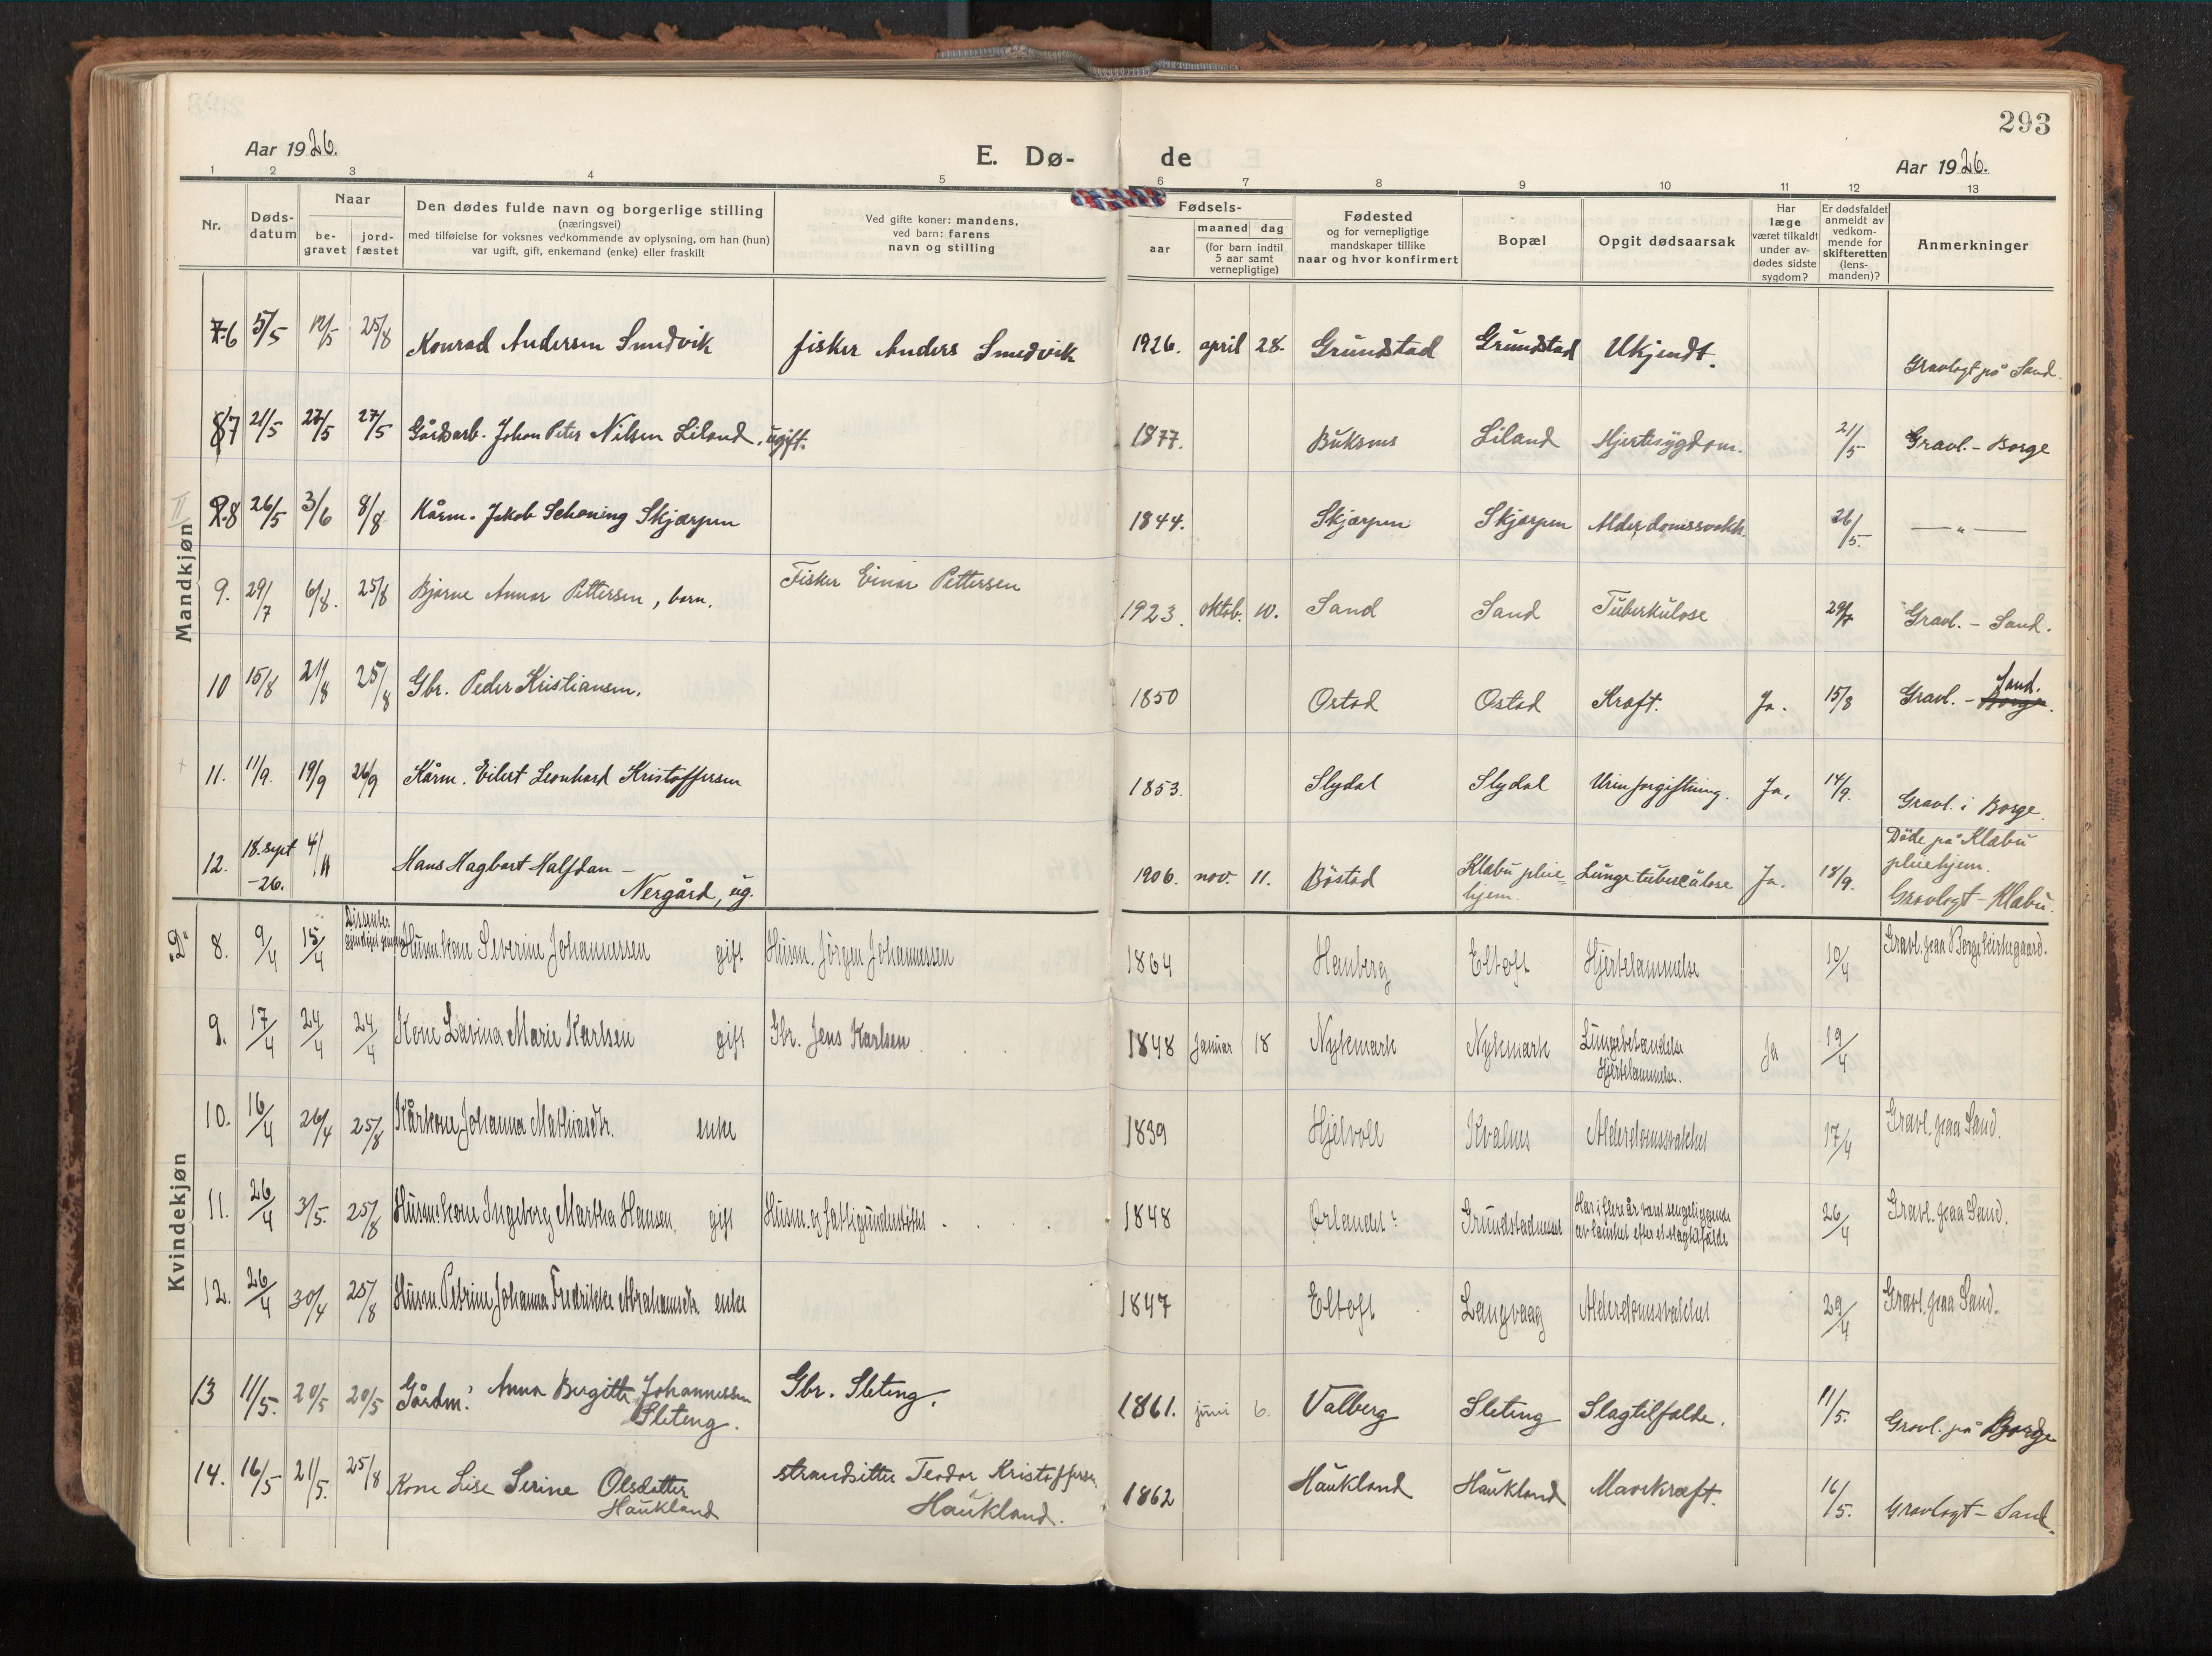 293
Aar 1926.
E. Dø- de
Aar 1926.
1 2 3 4 5 6 7 8 9 10 11 12 13
Nr.
Døds-
datum
Naar
be-
gravet
jord-
fæstet
Den dødes fulde navn og borgerlige stilling
(næringsvei)
med tilføielse for voksnes vedkommende av oplysning, om han (hun)
var ugift, gift, enkemand (enke) eller fraskilt
Ved gifte koner: mandens,
ved barn: farens
navn og stilling
Fødsels-
aar
maaned dag
(for barn indtil
5 aar samt
vernepligtige)
Fødested
og for vernepligtige
mandskaper tillike
naar og hvor konfirmert
Bopæl
Opgit dødsaarsak
Har
læge
været tilkaldt
under av-
dødes sidste
sygdom?
Er dødsfaldet
anmeldt av
vedkom-
mende for
skifteretten
(lens-
manden)?
Anmerkninger
Mandkjøn
6 5/5 12/5 25/8 Konrad Andersen Smedvik fisker Anders Smedvik 1926. april 28. Grundstad Grundstad Ukjendt. Gravlagt på Sand.
7 21/5 27/5 27/5 Gårdsarb. Johan Peter Nilsen Liland, ugift. 1877. Buksnes Liland Hjertesygdom. 21/5 Gravl. - Borge
8 26/5 3/6 8/8 Kårm. Jakob Schøning Skjærpen 1844. Skjærpen Skjærpen Alderdomssvakh. 26/5. — " —
9. 29/7 6/8. 25/8 Bjarne Annar Pettersen, barn. Fisker Einar Pettersen 1923. oktob. 10. Sand Sand Tuberkulose 29/7 Gravl. - Sand.
10 15/8 21/8 25/8 Gbr. Peder Kristiansen. 1850 Ostad Ostad Kræft. Ja. 15/8 Gravl. - Borge. Sand.
11. 11/9. 19/9 26/9 Kårm. Eilert Leonhard Kristoffersen 1853. Slydal Slydal Urinforgiftning. Ja. 14/9. Gravl. i Borge.
12. 18. sept -26. 4/11 Hans Hagbart Halfdan -
Nergård, ug. 1906. nov. 11. Bøstad Klæbu pleie-
hjem. Lungetuberculose Ja. 18/9. Døde på Klæbu
pleiehjem.
Gravlagt - Klæbu.
"D"
Kvindekjøn
8. 9/4 15/4 Dissenter Husm.kone Severine Johannessen gift Husm. Jørgen Johannessen 1864 Hanberg Eltoft Hjertelammelse 10/4 Gravl. paa Borge kirkegaard.
9. 17/4 24/4 24/4 Kone Lavina Marie Karlsen gift Gbr. Jens Karlsen 1848 Januar 18 Nykmark Nykmark Lungebetændelse
Hjertelammelse. Ja 19/4
10. 16/4 26/4 25/8 Kårkone Johanna Mathiasdtr. enke 1839 Hjelvoll Kvalnes Alderdomssvakhet 17/4 Gravl. paa Sand.
11. 26/4 3/5. 25/8 Husm.kone Ingeborg Martha Hansen. gift Husm. og fattigunderstøttet 1848 Ørlandet? Grundstadneset Har i flere år været sengeliggende
av lamhet efter et slagtilfælde 26/4 Gravl. paa Sand.
12. 26/4 30/4 25/8 Husm. Petrine Johanna Fredrikke Abrahamsdtr. enke 1847 Eltoft Langvaag Alderdomssvakhet 29/4 Gravl. paa Sand.
13 11/5. 20/5 20/5 Gårdm? Anna Bergitte Johannessen
Sleteng. Gbr. Sleteng. 1861. juni 6. Valberg Sleteng Slagtilfælde. 11/5. Gravl. på Borge
14. 16/5 21/5. 25/8 Kone Lise Serine Olsdatter
Haukland strandsitter Teodor Kristoffersen
Haukland. 1862 Haukland Haukland Mavekræft. 16/5. Gravlagt - Sand.